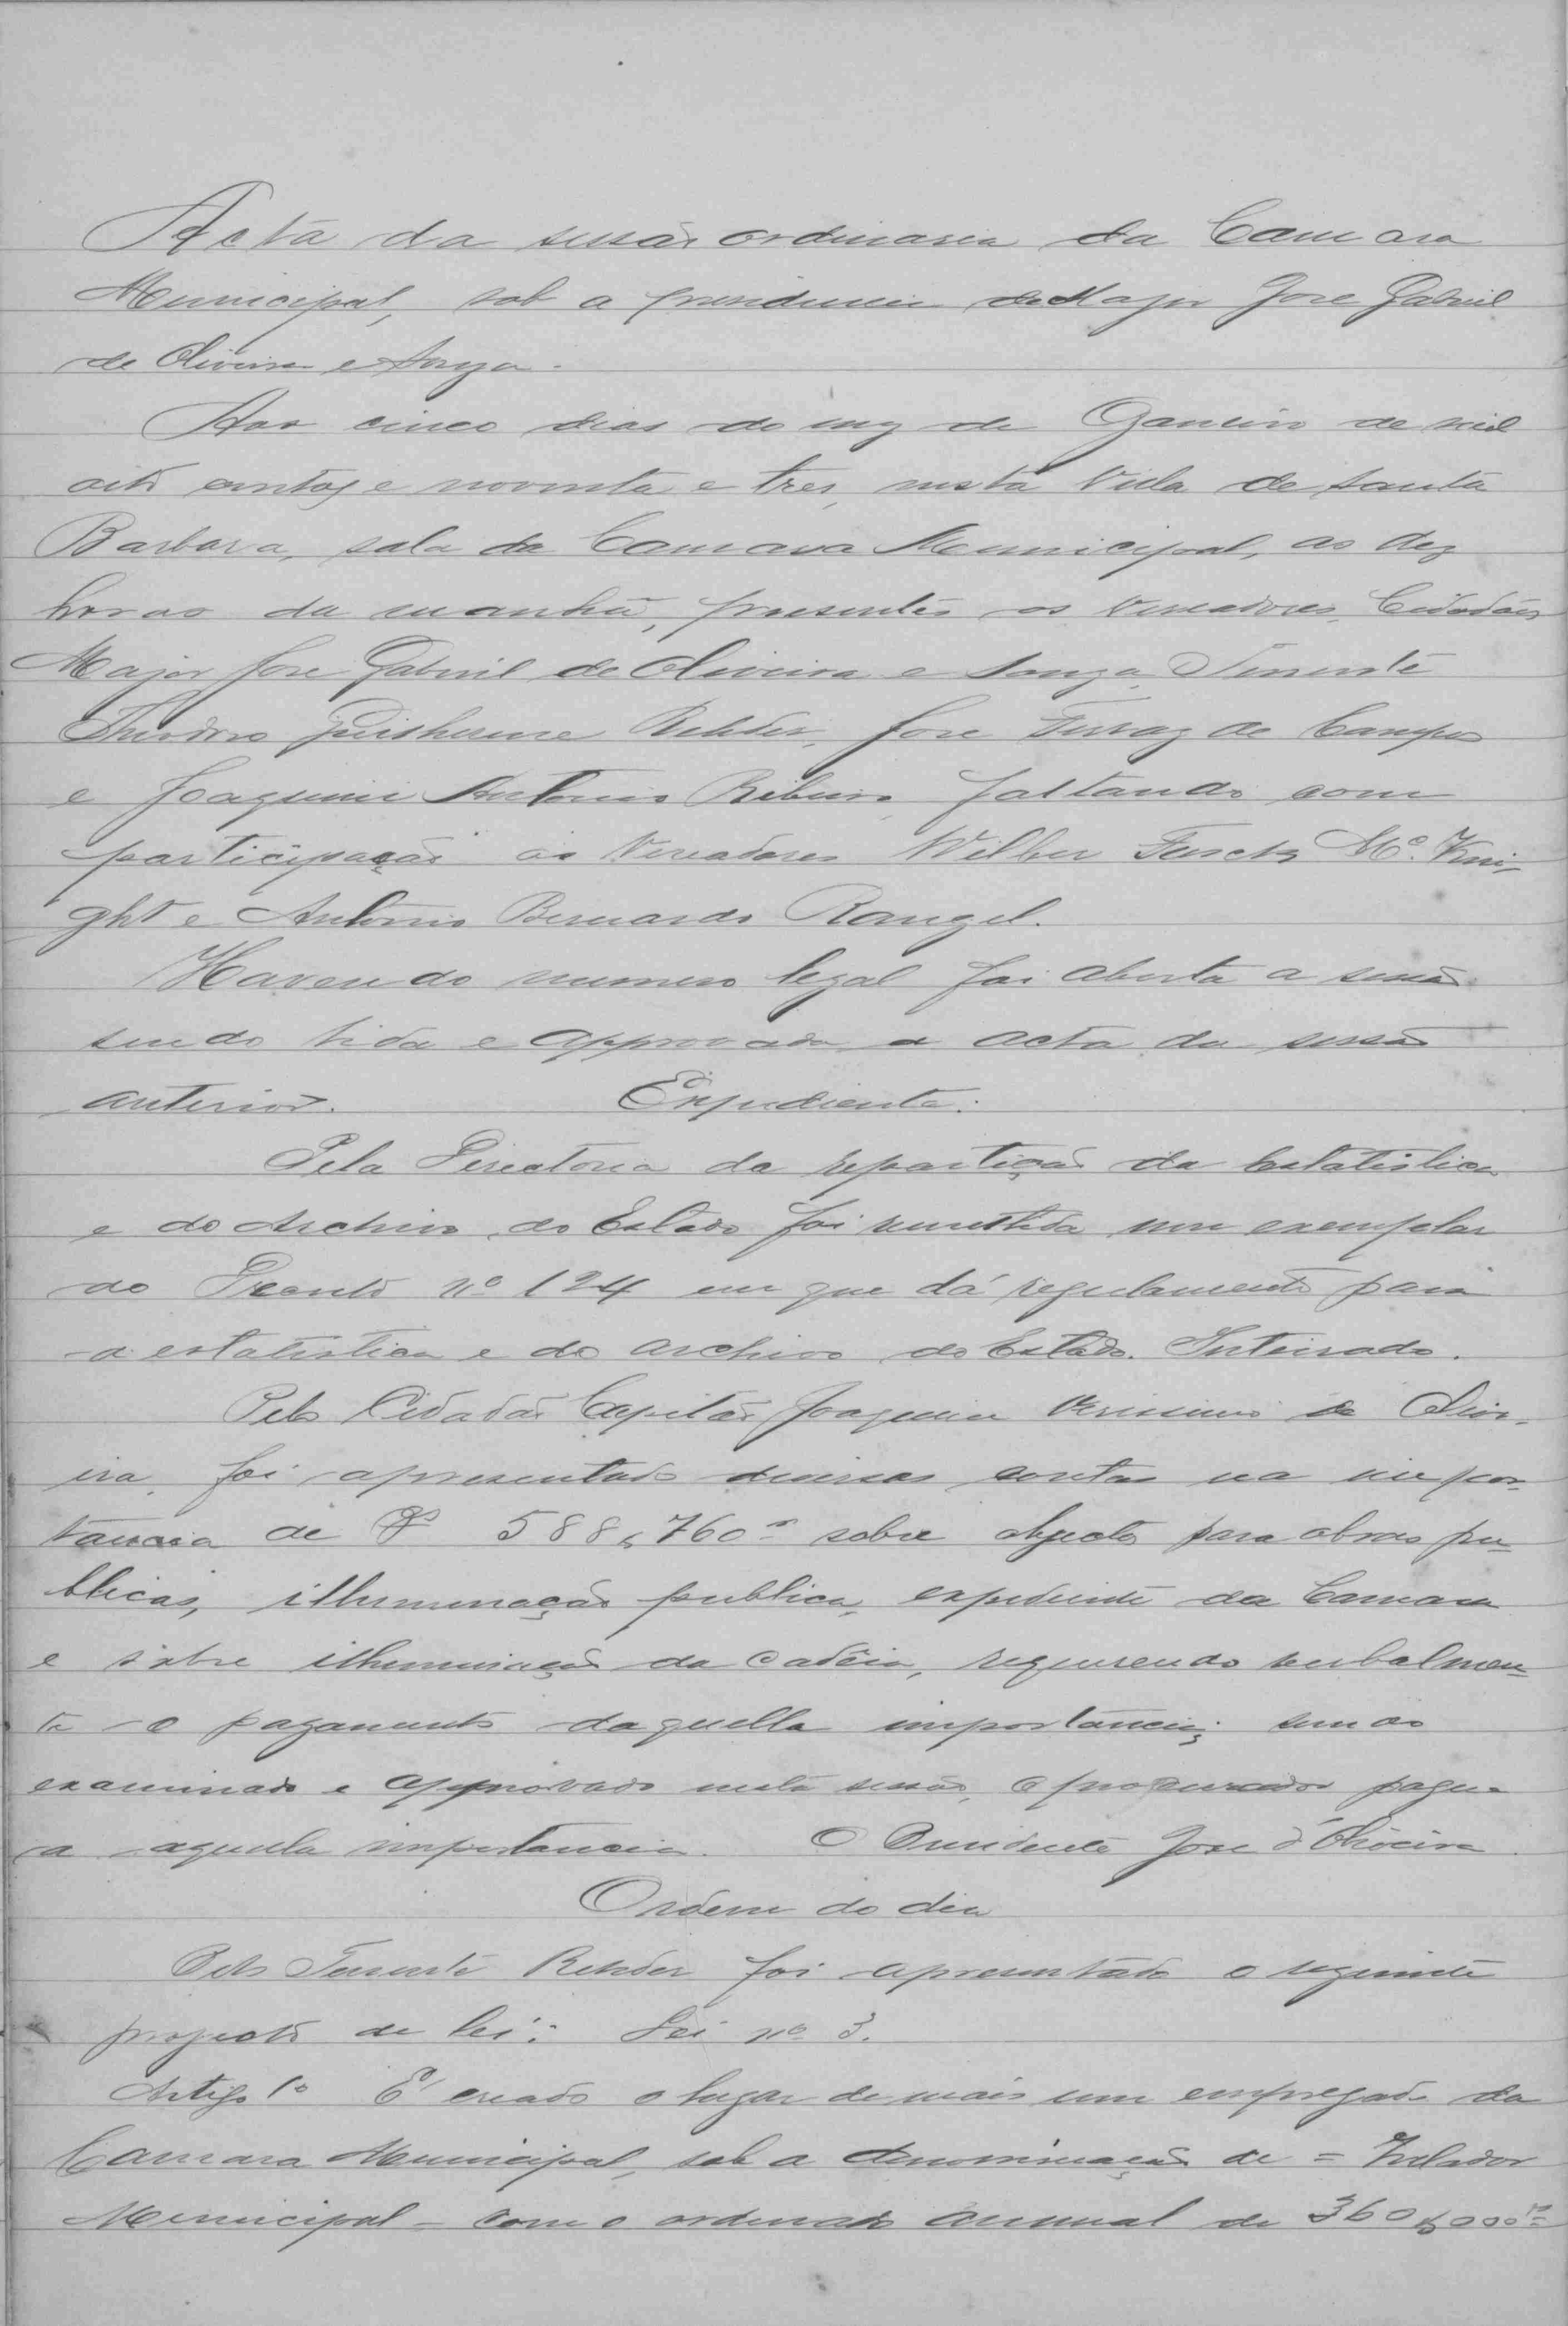 Acta da sessão ordinaria da Camara
Municipal, sob a presidencia do Major Jose Gabriel
de Oliveira e Souza.
Aos cinco dias do mez de Janeiro de mil
oito centos e noventa e tres, nesta Villa de Santa
Barbara, sala da Camara Municipal, as dez
horas da manhã, presentes os vereadores, Cidadãos
Major Jose Gabriel de Oliveira e Souza, Tenente
Theodoro Guilherme Rehder, Jose Ferraz de Campos
e Joaquim Antonio Ribeiro, faltando com
participação os Vereadores Wilber Mc. Kni-
ght e Antonio Bernardo Rangel.
Havendo numero legal foi aberta a sessão
sendo lida e approvada a acta da sessão
anterior. Expediente.
Pela Directoria da repartição da Estatistica
e do Archivo do Estado foi remettida um exemplar
do Decreto nº 124 em que dá regulamento para
a estatistica e do archivo do Estado. Inteirado.
Pelo Cidadão Capitão Joaquim Verissimo de Olive-
ira, foi apresentado diversas contas na impor-
tancia de R$ 588,760rs sobre objectos para obras pu-
blicas, illuminação publica, expediente da Camara
e sobre illuminação da cadêia, requerendo verbalmen-
te o pagamento daquella importancia; sendo
examinado e approvado nesta sessão, o procurador pague-
a aquella importancia. O Presidente Jose d'Oliveira.
Ordem do dia
Pelo Tenente Rehder foi apresentado o seguinte
projecto de lei: Lei nº 3.
Artigo 1º É creado o lugar de mais um empregado da
Camara Municipal, sob a denominação de = Zelador
Municipal – com o ordenado annual de 360$000rs=